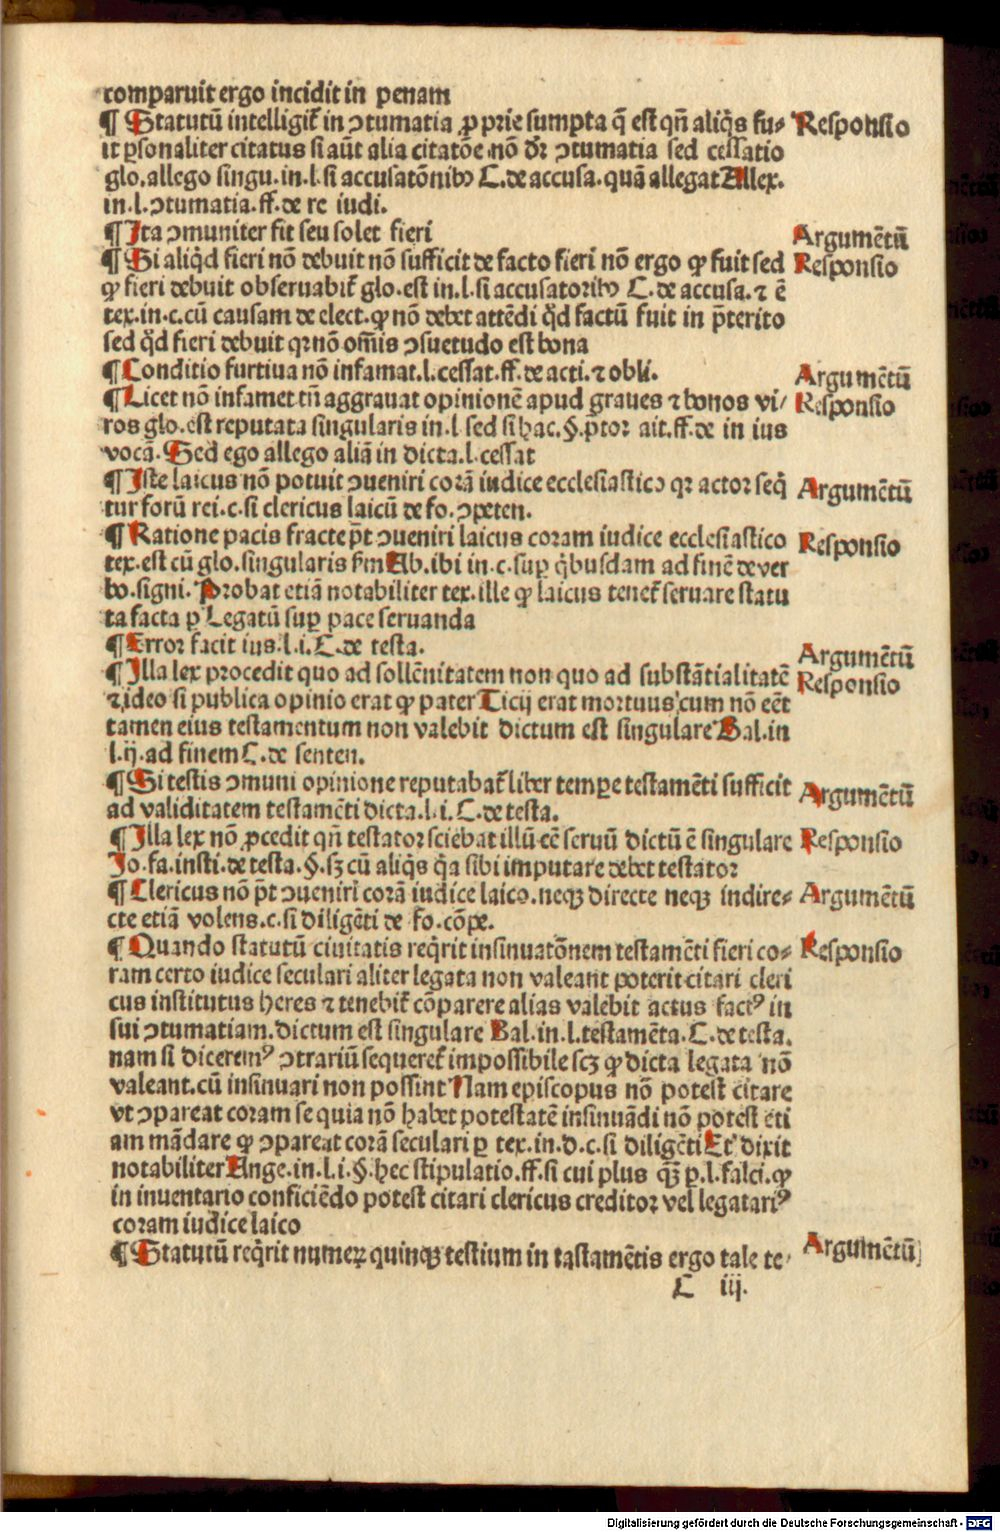 comparuit ergo incidit in penam
¶ Statutū intelligit᷑ in ↄtumatia ꝓprie sumpta q̄ est qn̄ aliq̇s fu⸗ Responsio
it ꝑsonaliter citatus si aūt alia citatōe nō dr̄ ↄtumatia sed cessatio
glo. allego singu. in. l. si accusatōnibꝰ C. de accusa. quā allegat Allex.
in. l. ↄtumatia. ff. de re iudi.
¶ Ita ↄmuniter fit seu solet fieri Argumētū
¶ Si aliq̇d fieri nō debuit nō sufficit de facto fieri nō ergo ꝙ fuit sed Responsio
ꝙ fieri debuit obseruabit᷑ glo. est in. l. si accusatoribꝰ C. de accusa. ⁊ ē
tex. in. c. cū causam de elect. ꝙ nō debet attēdi q̇d factū fuit in p̄terito
sed q̇d fieri debuit qꝛ nō om̄is ↄsuetudo est bona
¶ Conditio furtiua nō infamat. l. cessat. ff. de acti. ⁊ obli. Argumētū
¶ Licet nō infamet tn̄ aggrauat opinionē apud graues ⁊ bonos vi/ Responsio
ros glo. est reputata singularis in. l sed si hac. §. p̄tor ait. ff. de in ius
vocā. Sed ego allego aliā in dicta. l. cessat
¶ Iste laicus nō potuit ↄueniri corā iudice ecclesiastico qꝛ actor seq̇ Argumētū
tur forū rei. c. si clericus laicū de fo. ↄpeten.
¶ Ratione pacis fracte pt̄ ↄueniri laicus coram iudice ecclesiastico Responsio
tex. est cū glo. singularis ẜm Ab. ibi in. c. suꝑ q̇busdam ad finē de ver
bo. signi. Probat etiā notabiliter tex. ille ꝙ laicus tenet᷑ seruare statu
ta facta ꝑ Legatū suꝑ pace seruanda
¶ Error facit ius. l. i. C. de testa. Argumētū
¶ Illa lex procedit quo ad sollēnitatem non quo ad substātialitatē Responsio
⁊ ideo si publica opinio erat ꝙ pater Ticij erat mortuus cum nō eēt
tamen eius testamentum non valebit dictum est singulare Bal. in
l. ij. ad finem C. de senten.
¶ Si testis ↄmuni opinione reputabat᷑ liber tempe testamēti sufficit Argumētū
ad validitatem testamēti dicta. l. i. C. de testa.
¶ Illa lex nō ꝓcedit qn̄ testator sciebat illū eē seruū dictū ē singulare Responsio
Jo. fa. insti. de testa. §. sꝫ cū aliq̇s q̇a sibi imputare debet testator
¶ Clericus nō pt̄ ↄueniri corā iudice laico. neqꝫ directe neqꝫ indire⸗ Argumētū
cte etiā volens. c. si diligēti de fo. cōpe.
¶ Quando statutū ciuitatis req̇rit insinuatōnem testamēti fieri co⸗ Responsio
ram certo iudice seculari aliter legata non valeant poterit citari cleri
cus institutus heres ⁊ tenebit᷑ cōparere alias valebit actus factꝰ in
sui ↄtumatiam. dictum est singulare Bal. in. l. testamēta. C. de testa.
nam si diceremꝰ ↄtrariū sequeret᷑ impossibile scꝫ ꝙ dicta legata nō
valeant. cū insinuari non possint Nam episcopus nō potest citare
vt ↄpareat coram se quia nō habet potestatē insinuādi nō potest eti
am mādare ꝙ ↄpareat corā seculari ꝑ tex. in. d. c. si diligēti Et dixit
notabiliter Ange. in. l. i. §. hec stipulatio. ff. si cui plus qꝫ̄ ꝑ. l. falci. ꝙ
in inuentario conficiēdo potest citari clericus creditor vel legatariꝰ
coram iudice laico
¶ Statutū req̇rit numeꝝ quinqꝫ testium in tastamētis ergo tale te⸗ Argumētū
C iij.
Digitalisierung gefördert durch die Deutsche Forschungsgemeinschaft - DFG